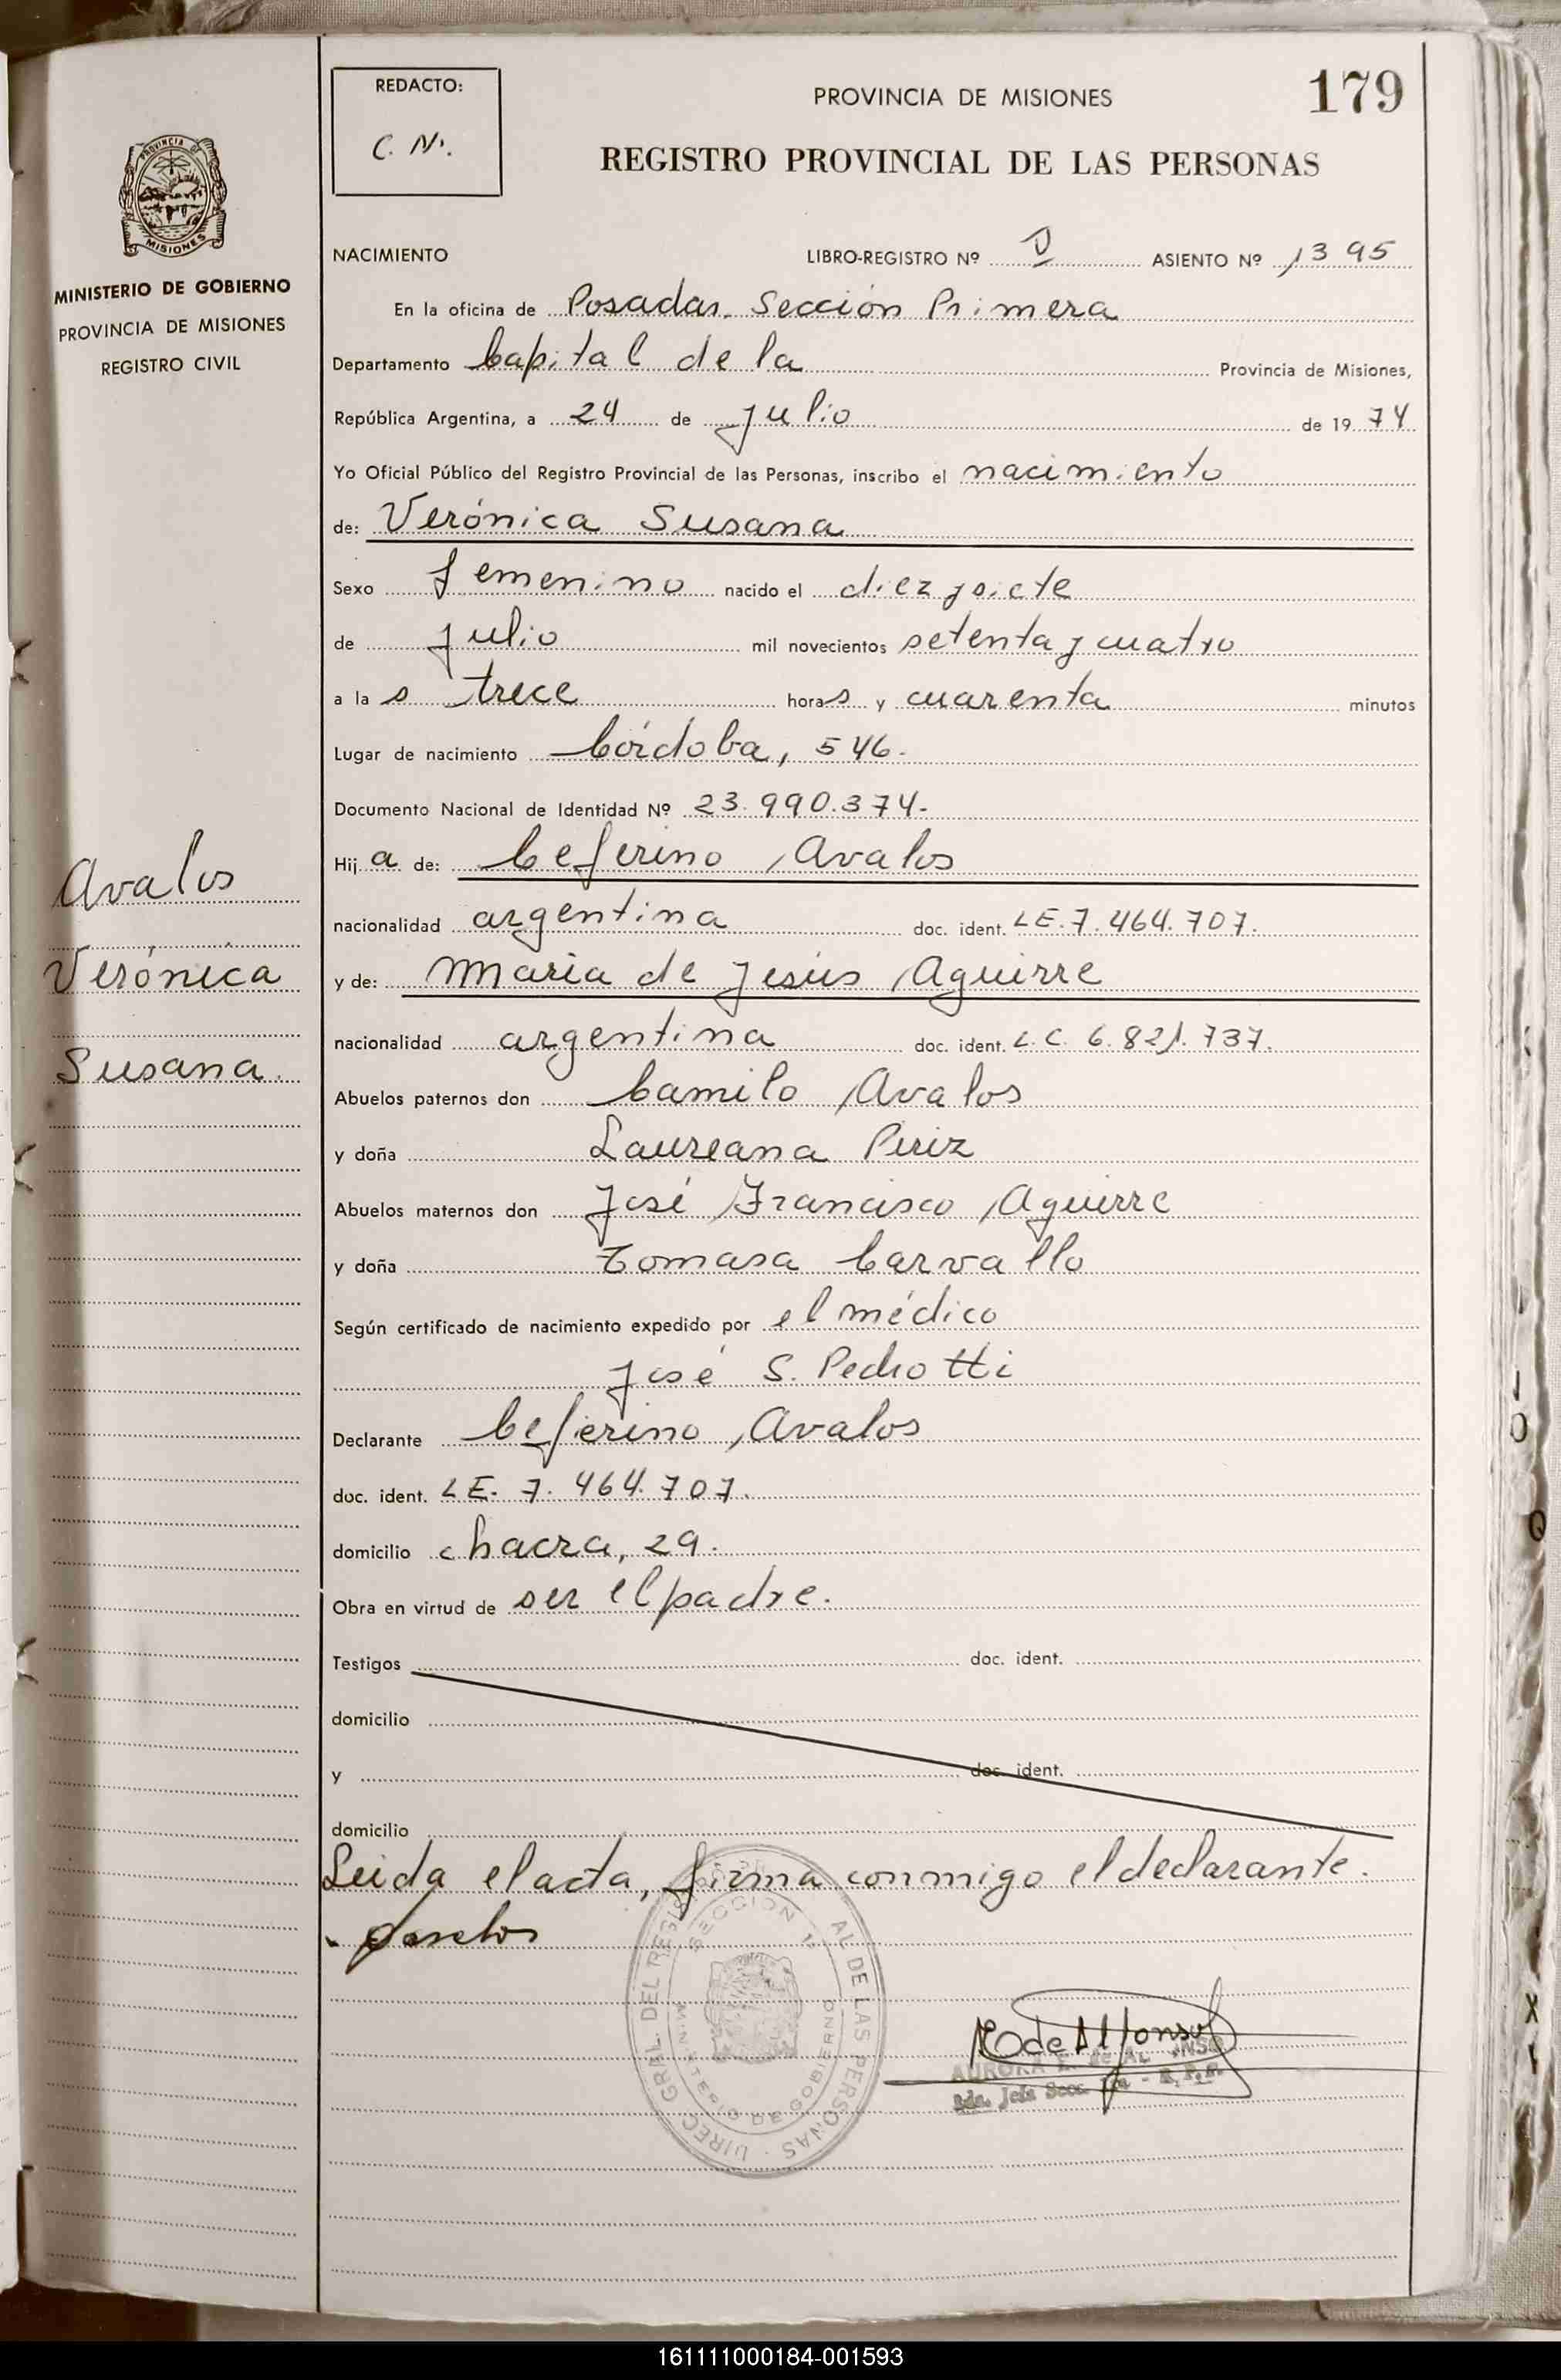 REDACTO:
C. N.
PROVINCIA DE MISIONES
179
REGISTRO PROVINCIAL DE LAS PERSONAS
PROVINCIA DE
MISIONES
MINISTERIO DE GOBIERNO
PROVINCIA DE MISIONES
REGISTRO CIVIL
NACIMIENTO LIBRO-REGISTRO Nº V ASIENTO Nº 1395
En la oficina de Posadas. Sección Primera
Departamento Capital de la Provincia de Misiones,
República Argentina, a 24 de julio de 1974
Yo Oficial Público del Registro Provincial de las Personas, inscribo el nacimiento
de: Verónica Susana
Sexo femenino nacido el diezysiete
de julio mil novecientos setenta y cuatro
a las trece horas y cuarenta minutos
Lugar de nacimiento Córdoba, 546.
Documento Nacional de Identidad Nº 23.990.374.
Hija de: Ceferino Avalos
nacionalidad argentina doc. ident. LE. 7.464.707.
y de: Maria de Jesús Aguirre
nacionalidad argentina doc. ident. L.C. 6.821.737.
Abuelos paternos don Camilo Avalos
y doña Laureana Piriz
Abuelos maternos don José Francisco Aguirre
y doña Tomasa Carvallo
Según certificado de nacimiento expedido por el médico
José S. Pedrotti
Declarante Ceferino Avalos
doc. ident. LE. 7.464.707.
domicilio chacra, 29.
Obra en virtud de ser el padre.
Testigos doc. ident.
domicilio
y doc. ident.
domicilio
Leida el acta, firma conmigo el declarante.
Avalos
Verónica
Susana.
SECCION 1
DIREC. GRAL. DEL REGIS AL DE LAS PERSONAS
MINISTERIO DE GOBIERNO
de Alfonso
AURORA E. de AL NSO
161111000184-001593